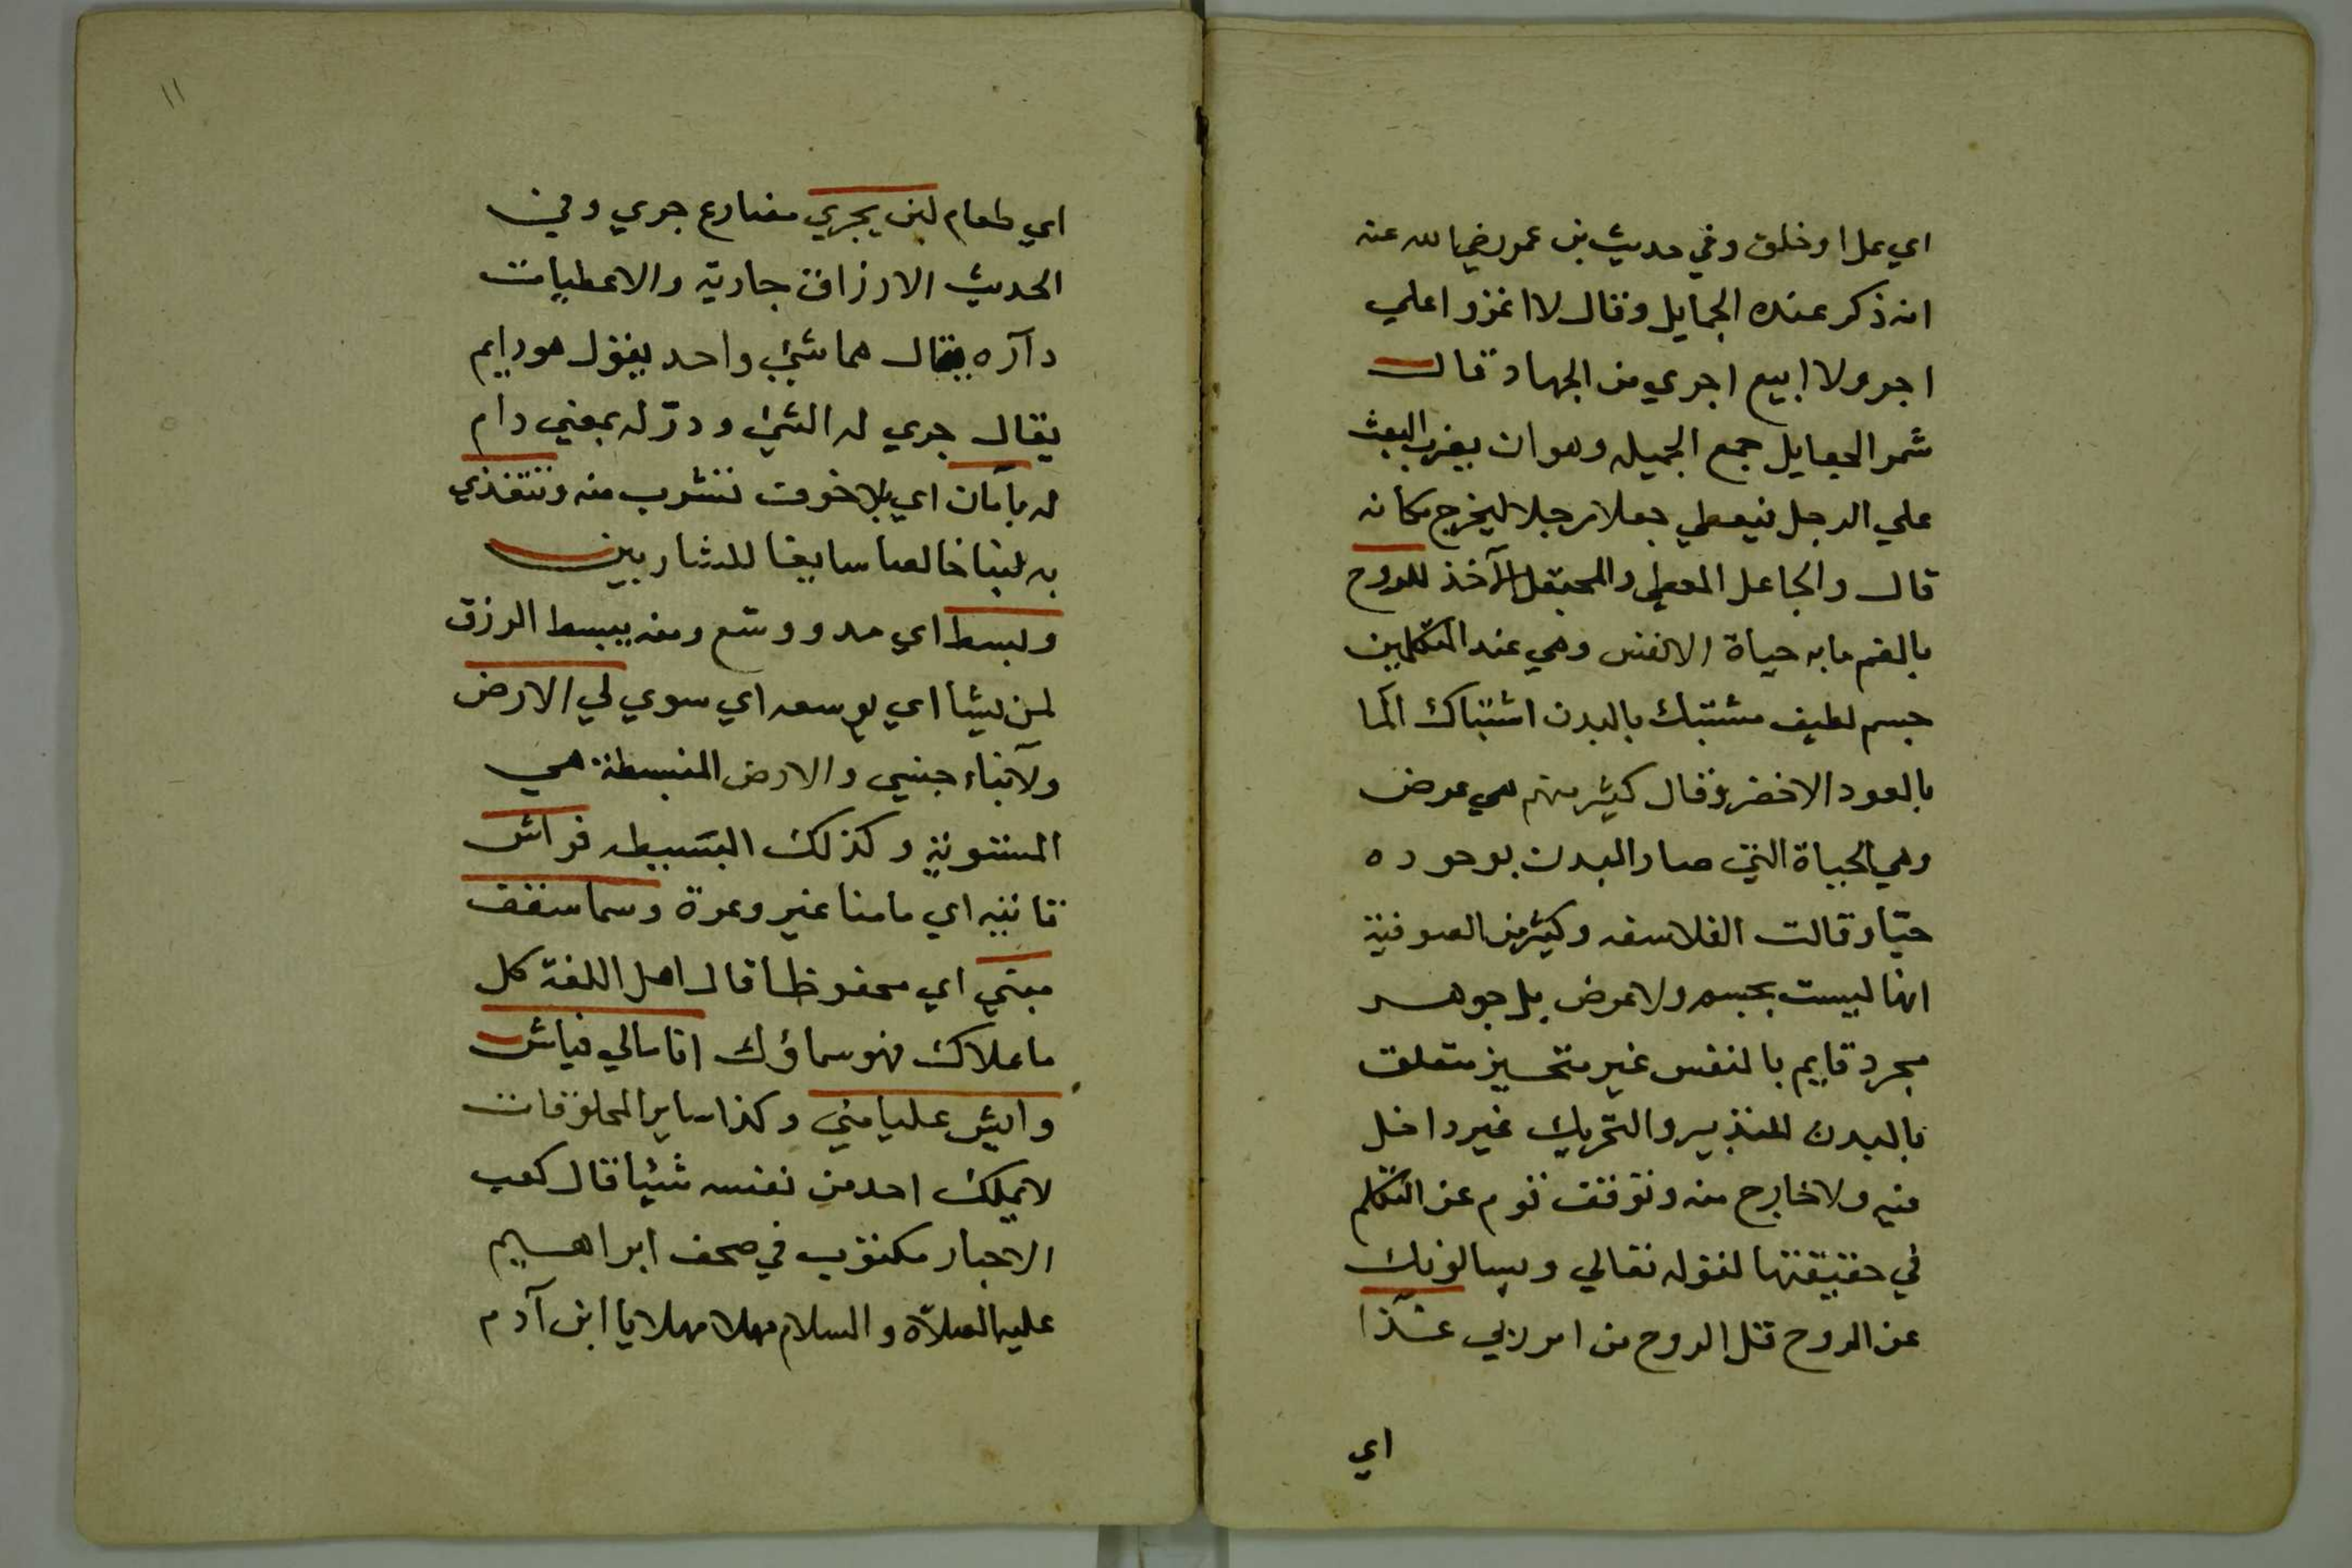 اي عملا وخلق وفي حديث بن عمر رضي الله عنه
انه ذكر عنده الجمايل وقال لا اغزوا علي
اجر ولا ابيع اجري من الجهاد قال
شمر الجعايل جمع الجميله وهو ان يضرب البعث
علي الرجل فيعطي جعلا رجلا ليخرج مكانه
قال والجاعل المعطي والمجتعل الآخذ للروح
بالضم ما به حياة الانفس وهي عند المتكلمين
جسم لطيف مشتبك بالبدن اشتباك الما
بالعود الاخضر وقال كثير منهم هي عرض
وهي الحياة التي صار البدن بوجوده
حيّا وقالت الفلاسفه وكثير من الصوفية
انها ليست بجسم ولا عرض بل جوهر
مجرد قايم بالنفس غير متحيز متعلق
بالبدن للتدبير والتحريك غير داخل
فيه ولا خارج منه وتوقف قوم عن التكلم
في حقيقتها لقوله تعالي ويسالونك
عن الروح قل الروح من امر ربي
اي
١١
اي طعام لبن يجري مضارع جري وفي
الحديث الارزاق جارية والاعطيات
دآره يقال هما شيئ واحد يقول هو دايم
يقال جري له الشيئ ودرّ له بمعني دام
له بآمان اي بلا خوف نشرب منه ونتغذي
به لبنا خالصا سايغا للشاربين
وبسط اي مد ووسّع ومنه يبسط الرزق
لمن يشأ اي يوسعه اي سوي لي الارض
ولآبناء جنسي والارض المنبسطة هي
المستوية وكذلك البسيطه فراش
قاننيه اي مامنا غير وعرة وسما سقف
مبني اي محفوظا قال اهل اللغة كل
ما علاك فهو سماؤك انا مالي فياش
وايش عليا مني وكذا ساير المخلوقات
لا يملك احد من نفسه شيئا قال كعب
الاحبار مكتوب في صحف ابراهيم
عليه الصلاة والسلام مهلا مهلا يا ابن آدم